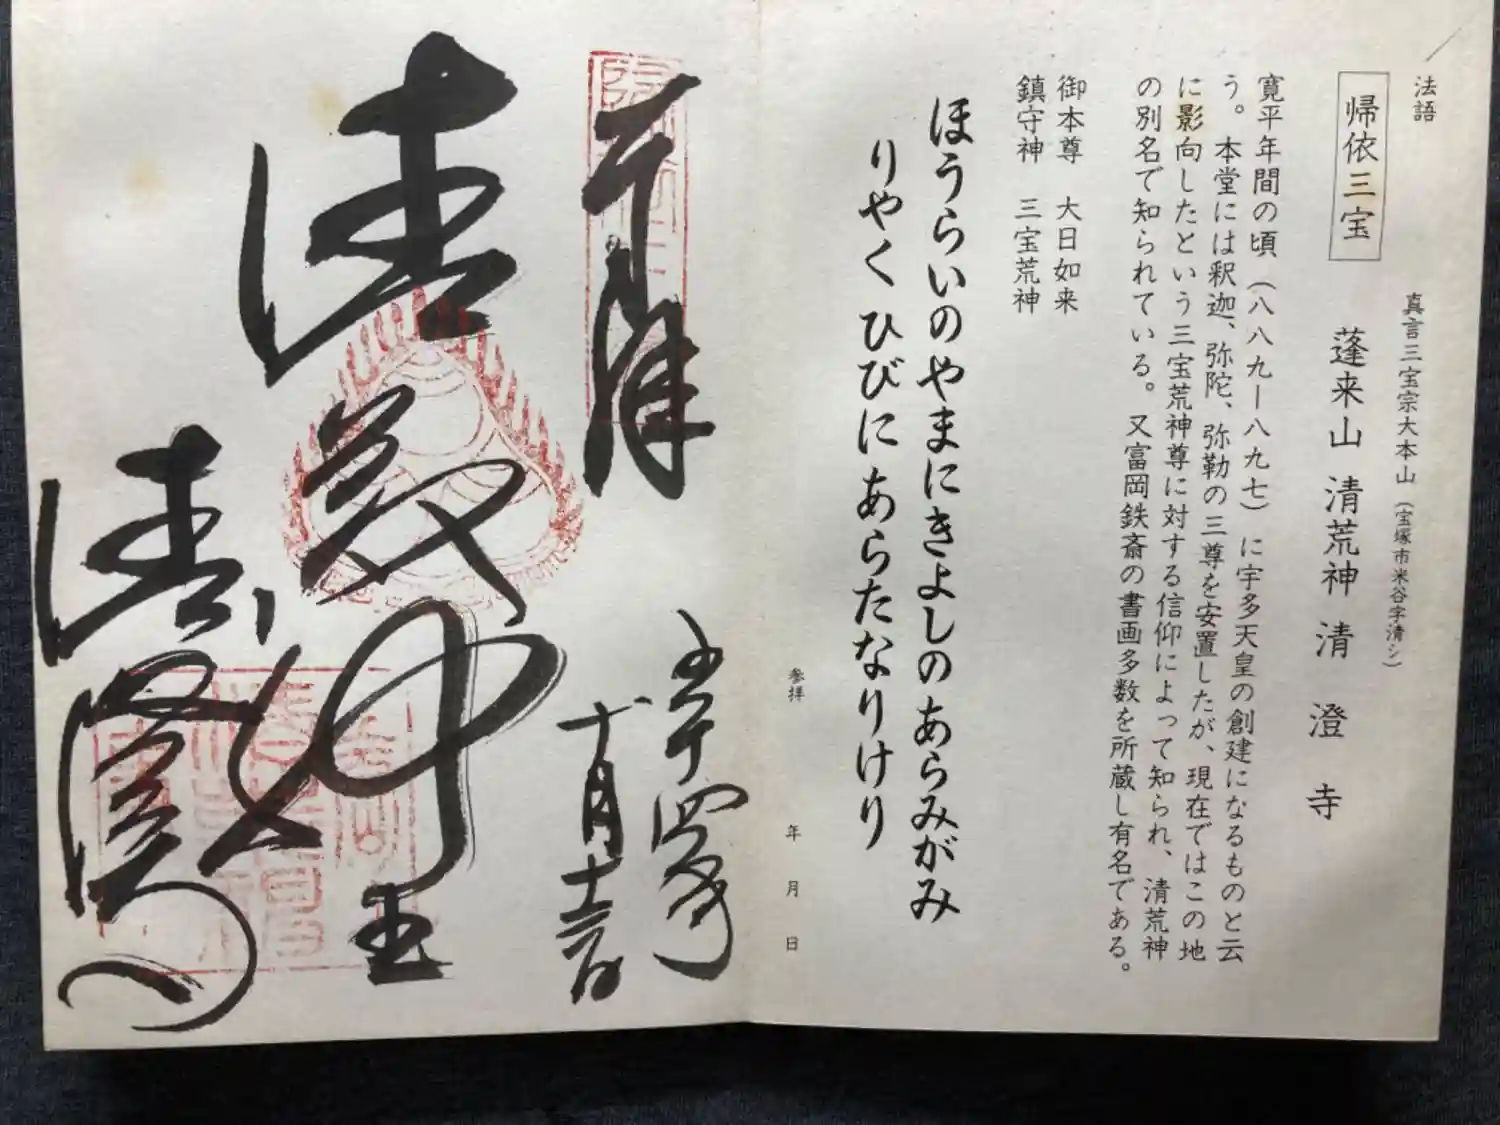 法語
帰依三宝
真言三宝宗大本山（宝塚市米谷字清シ）
蓬来山 清荒神 清澄寺
寛平年間の頃（八八九ー八九七）に宇多天皇の創建になるものと云
う。本堂には釈迦、弥陀、弥勒の三尊を安置したが、現在ではこの地
に影向したという三宝荒神尊に対する信仰によって知られ、清荒神
の別名で知られている。又富岡鉄斎の書画多数を所蔵し有名である。
御本尊 大日如来
鎮守神 三宝荒神
ほうらいのやまにきよしのあらみがみ
りやく ひびに あらたなりけり
参拝 年 月 日
奉拝
五十四年
十月十六日
清荒神王
清